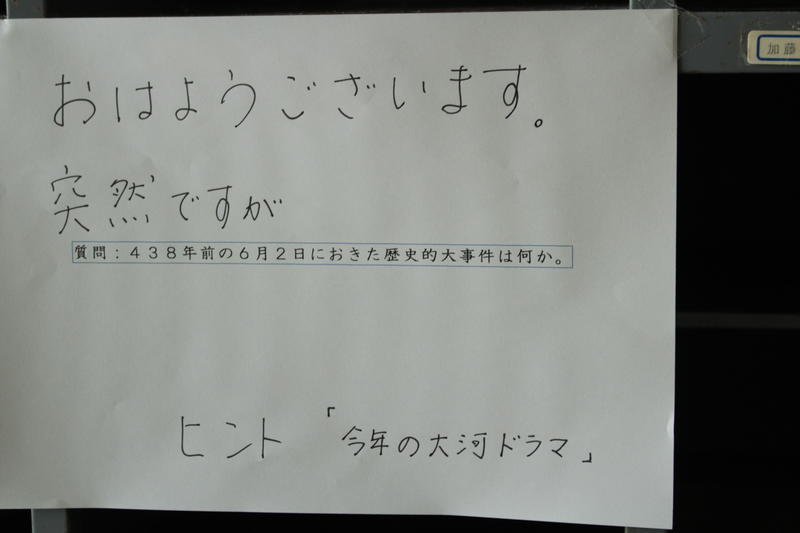 加藤
おはようございます。
突然ですが
質問：４３８年前の６月２日におきた歴史的大事件は何か。
ヒント 「今年の大河ドラマ」